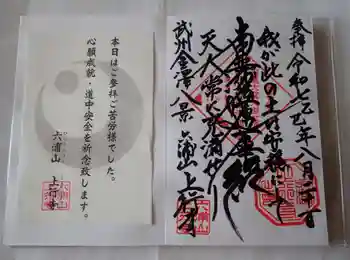 参拝 令和七乙巳年八月二十一日
我が此の土は安穏にして
南無妙法蓮華経
天人常に充満せり
武州金澤八景 六浦山 上行寺
本日はご参拝ご苦労様でした。
心願成就・道中安全を祈念致します。
六浦山 上行寺